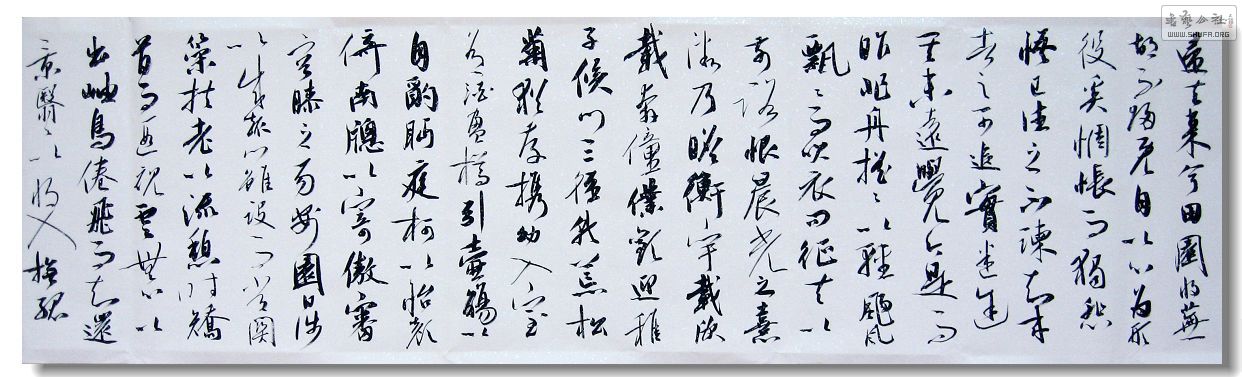 歸去来兮田園将蕪
胡不歸既自以心为形
役奚惆悵而獨悲
悟已往之不諫知来
者之可追實迷途
其未遠覺今是而
昨非舟摇々以轻颺風
飄々而吹衣问征夫以
前路恨晨光之熹
微乃瞻衡宇載欣
載奔僮僕歡迎稚
子候门三徑就荒松
菊猶存携幼入室
有酒盈樽引壺觴以
自酌眄庭柯以怡颜
倚南牕以寄傲審
容膝之易安園日涉
以成趣门雖设而常関
策扶老以流憩时矯
首而遐觀雲無心以
出岫鳥倦飛而知還
景翳々以将入撫孤
书艺公社
WWW.SHUFA.ORG